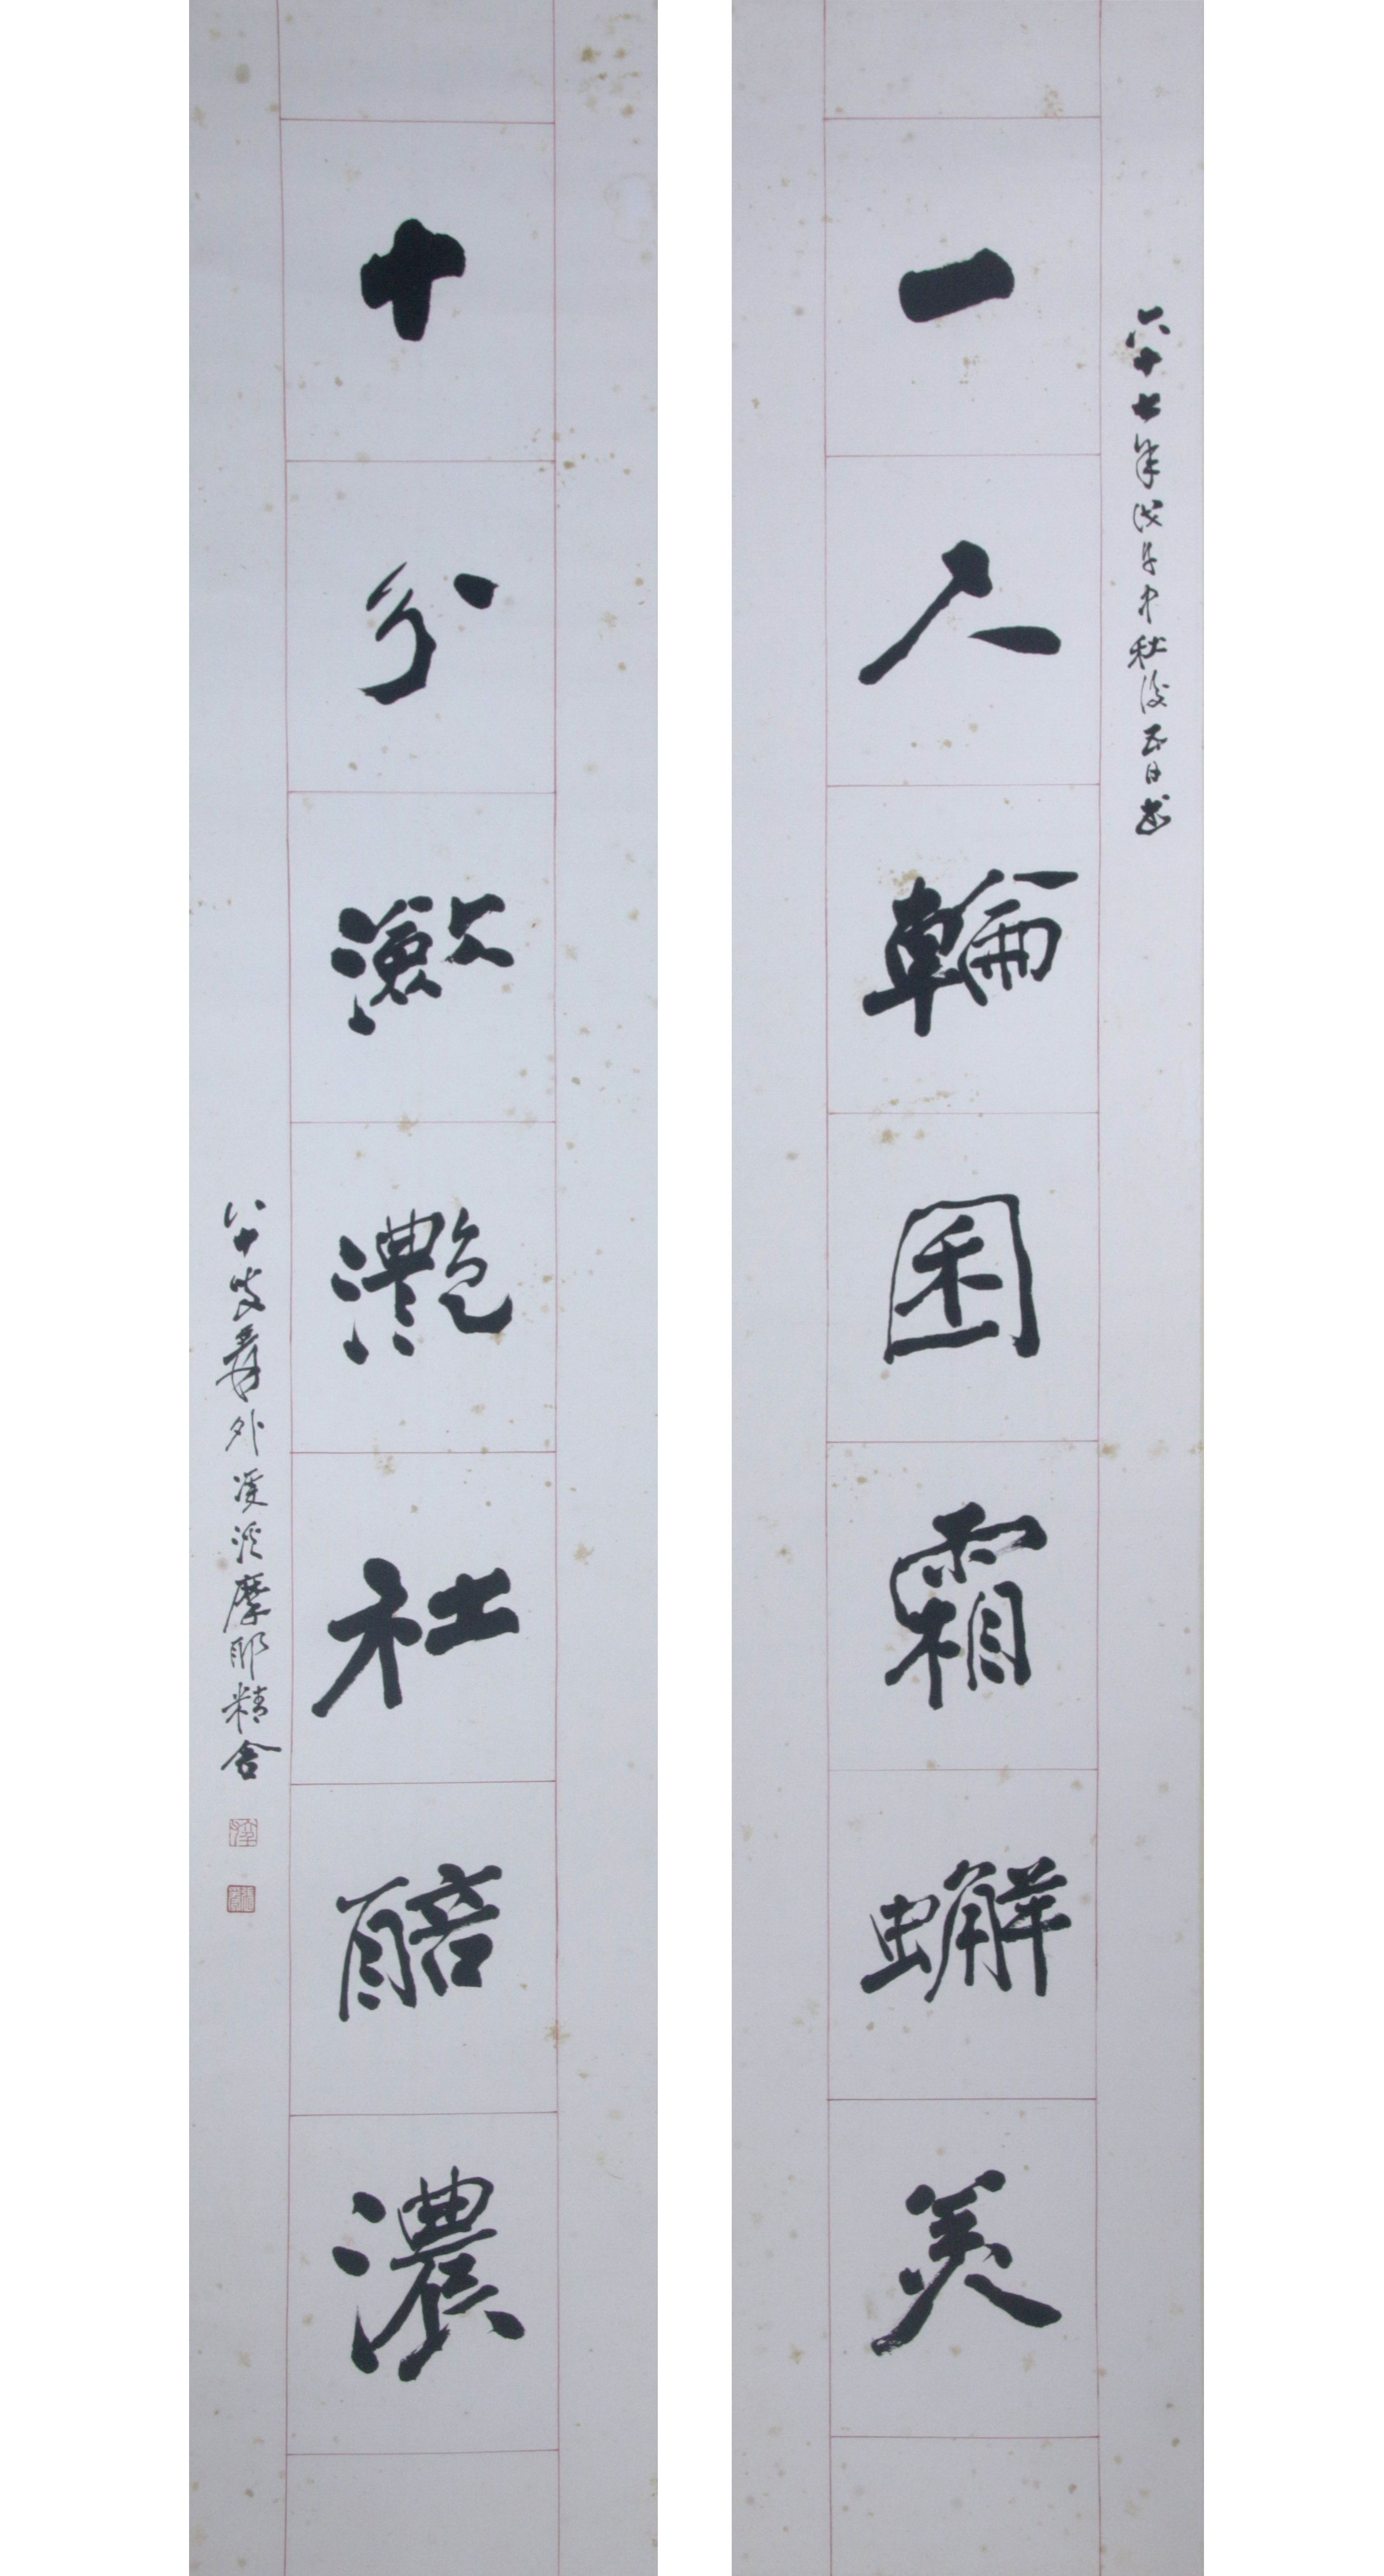 六十七年戊午中秋後五日書
一尺輪囷霜蠏美
十分瀲灩社醅濃
八十叟爰外雙溪摩耶精舍